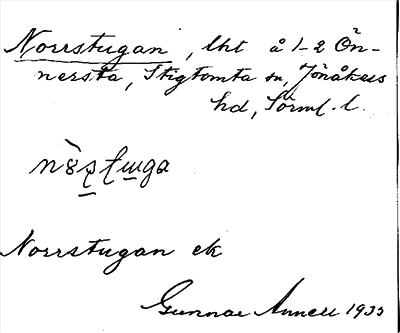 Norrstugan, lht å 1-2 Ön-
nersta, Stigtomta sn, Jönåkers
hd, Sörml. l.
Norrstugan ek
Gunnar 1933